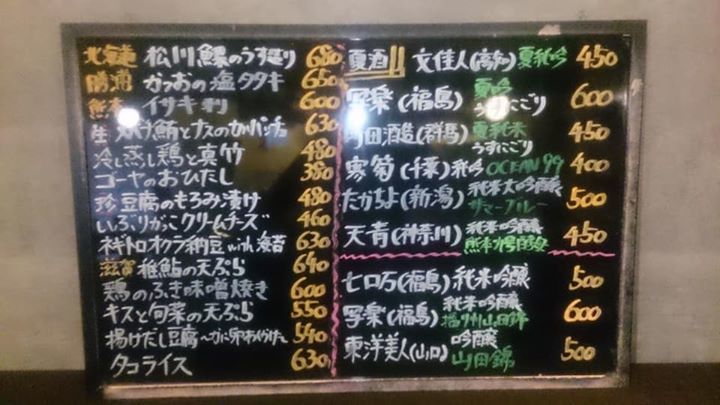 北海道 松川鰈のうす造り 680
勝浦 かつおの塩タタキ 650
熊本 イサキ刺 600
生 鮪とナスのカルパッチョ 630
冷し蒸し鶏と真竹 480
ゴーヤのおひたし 380
珍 豆腐のもろみ漬け 480
いぶりがっこクリームチーズ 460
ネギトロオクラ納豆with海苔 630
滋賀 稚鮎の天ぷら 640
鶏のふき味噌焼き 600
キスと旬菜の天ぷら 550
揚げだし豆腐 540
タコライス 630
夏酒!! 文佳人(高知) 夏純吟 450
写楽(福島) 夏吟 うすにごり 600
町田酒造(群馬) 夏純米 うすにごり 450
寒菊(千葉) 純吟 OCEAN 99 400
たかちよ(新潟) 純米大吟醸 サマーブルー 500
天青(神奈川) 純米吟醸 450
七ロ万(福島) 純米吟醸 500
写楽(福島) 純米吟醸 播州山田錦 600
東洋美人(山口) 吟醸 山田錦 500